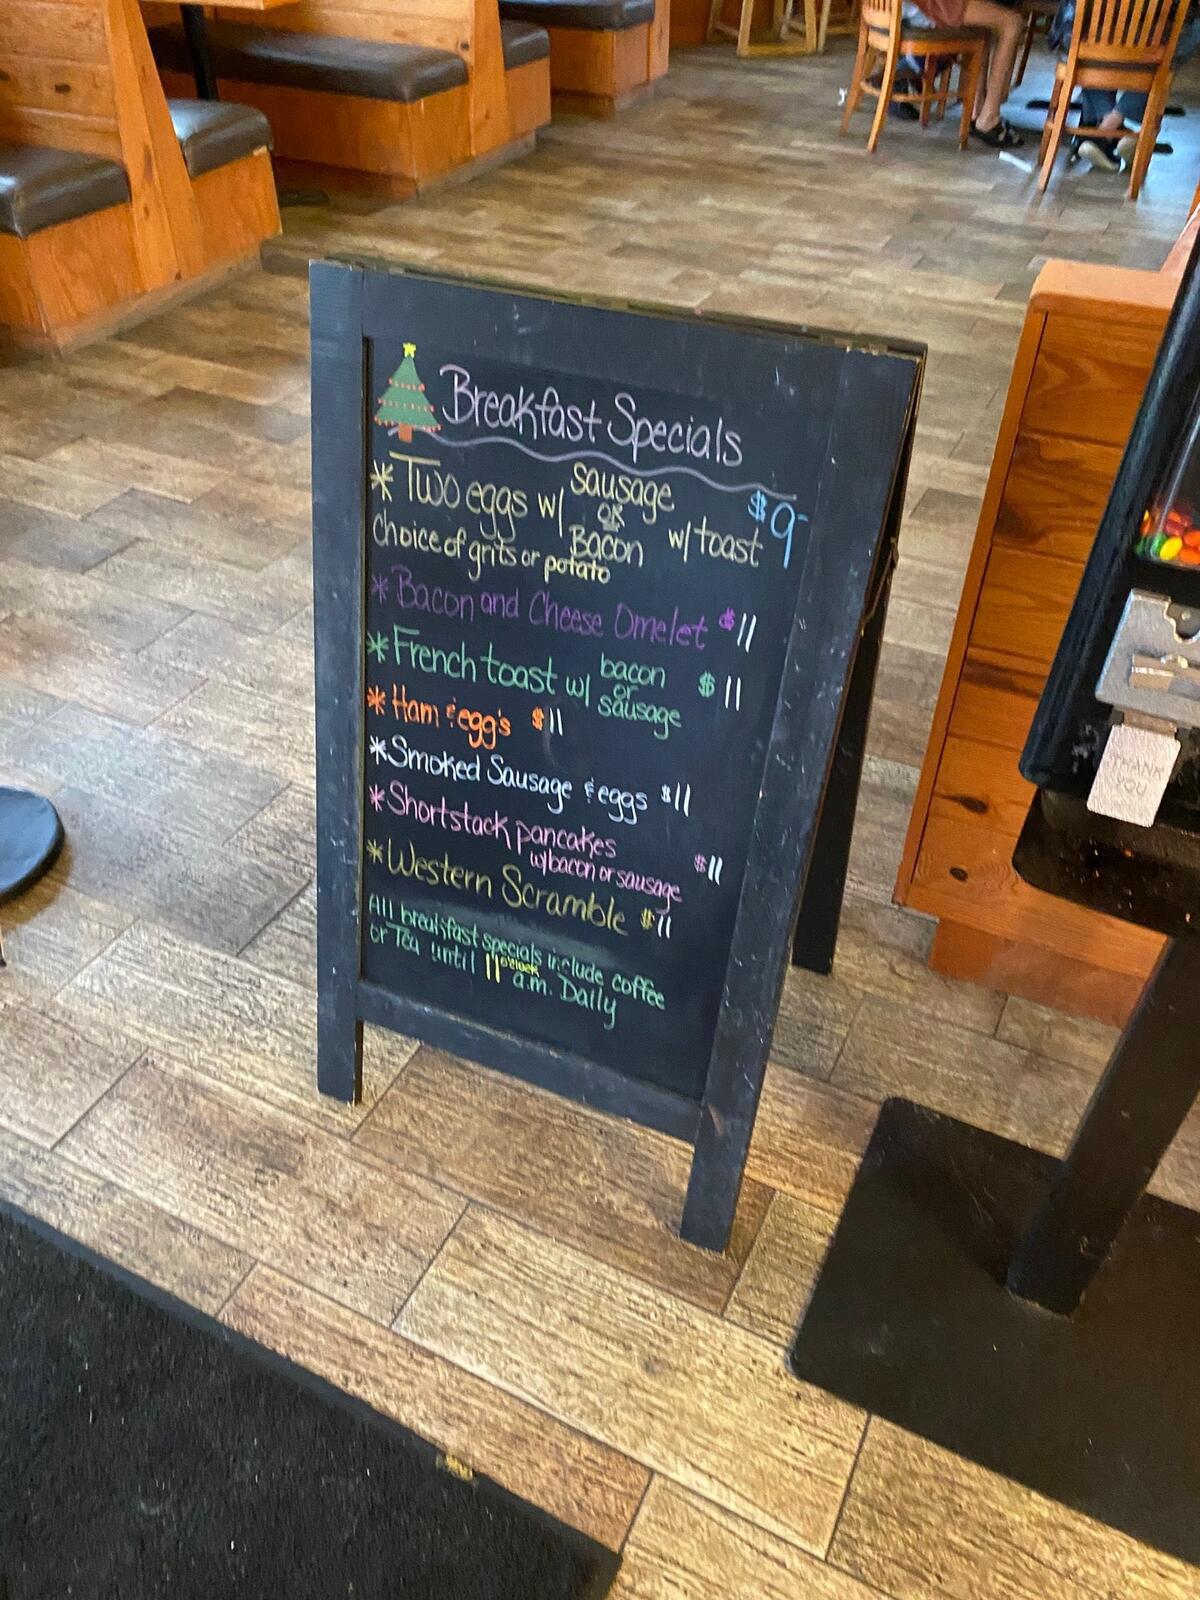 Breakfast Specials
* Two eggs w/ sausage or Bacon w/ toast $9-
choice of grits or potato
* Bacon and Cheese Omelet $11
* French toast w/ bacon or sausage $11
* Ham & egg's $11
* Smoked Sausage & eggs $11
* Shortstack pancakes
w/ bacon or sausage $11
* Western Scramble $11
All breakfast specials include coffee
or Tea until 11 o'clock a.m. Daily
THANK
YOU